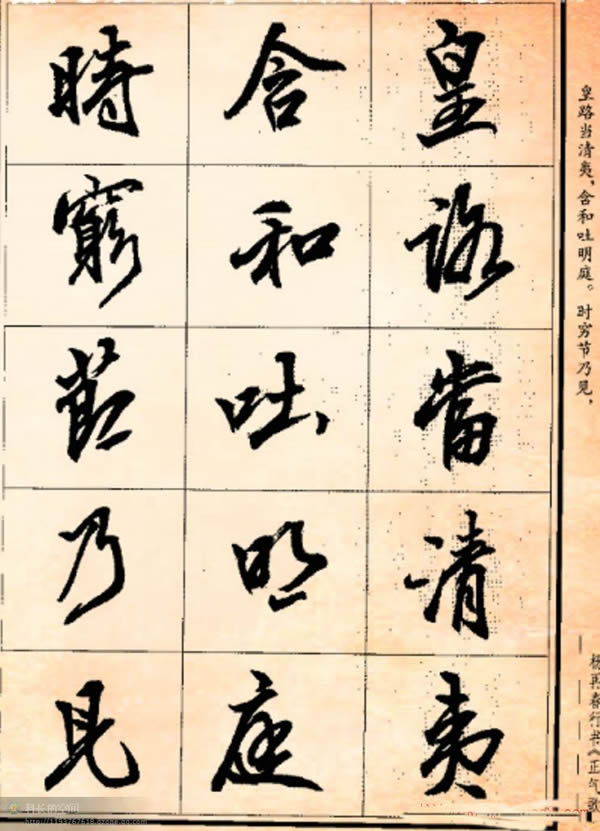 皇路當清夷
含和吐明庭
時窮節乃見
皇路当清夷，含和吐明庭。时穷节乃见，
杨再春行书《正气歌
科长的空间